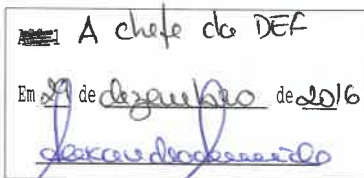 A chefe da DEF
Em 29 de dezembro de 2016